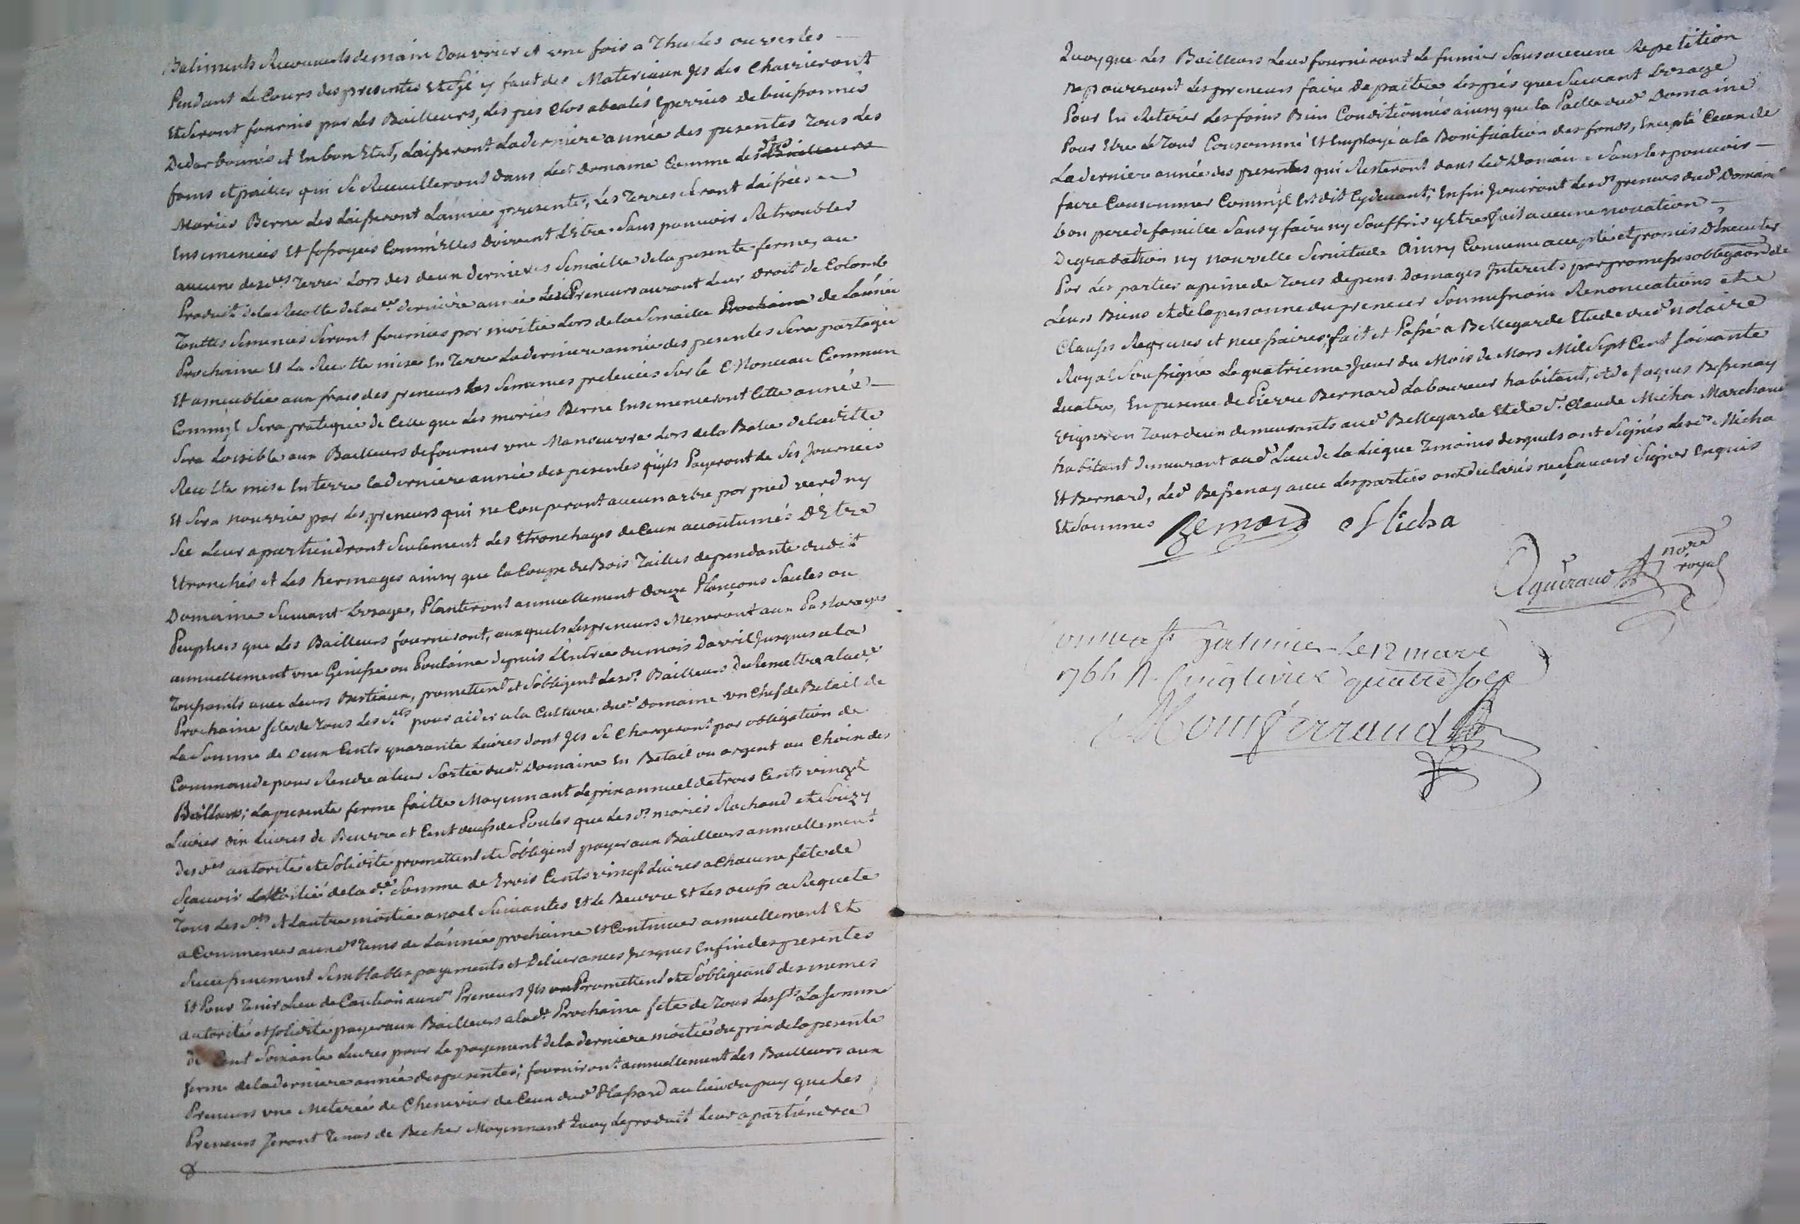 Batiments Recouverts de main Douvrier et une fois a Thuiles ouvertes
Pendant Le Cours des presentes et s'jl y faut des Materiaux jls les Charrieront
Et seront fournis par les Bailleurs, Les pres Clos abealés Eperriés debuissonnés
Dedarbounés et En bon Etat, Laisseront La derniere année des presentes Tous Les
foins et pailles qui se Recueilleront dans led.t domaine Comme les d.ts
Mariés Berne Les Laisseront Lannée presente, Les Terres seront Laissées
Ensemencées Et fossoyées Comm'Elles doivent L'Etre sans pouvoir Retroubler
aucune desd.es Terres Lors des deux dernieres Semailles de la presente ferme, au
Produit de la Recolte de lad.e derniere année Les Preneurs auront Leur droit de Colons
Touttes semences seront fournies par moitié Lors de la Semaille de Lannée
Prochaine Et La Recolte mise En Terre La derniere année des presentes sera partagée
Et ameublée aux frais des preneurs Les Semences prelevées sur le Monceau Commun
Comm'jl sera pratiqué de Celle que les mariés Berne Ensemenceront Cette année
Sera Loisible aux Bailleurs de fournir une Manoeuvre Lors de la Batue de ladite
Recolte mise En terre la derniere année des presentes qu'jls Payeront de ses Journées
Et sera nourrie par les preneurs qui ne Couperont aucun arbre par pied verd ny
sec Leur apartiendront seulement Les Etronchages de Ceux accoutumés D'Etre
Etronchés et Les hermages ainsy que la Coupe du Bois Taillis dependante dudit
Domaine suivant L'usage, Planteront annuellement douze Plançons saules ou
Peupliers que Les Bailleurs fourniront, auxquels Les preneurs Meneront aux Pasturages
annuellement une Genisse ou Poulaine depuis L'Entrée du mois Davril Jusques a la
Toussaints avec Leurs Bestiaux, promettent et s'obligent Lesd.s Bailleurs de Remettre a lad.e
Prochaine fete de Tous Les S.ts pour aider a la Culture dud.t Domaine un Chef de Betail de
La Somme de Deux Cents quarante Livres dont jls se Chargeront par obligation de
Commande pour Rendre a leur Sortie dud.t Domaine En Betail ou argent au Choix des
Bailleurs; La presente ferme faitte Moyennant le prix annuel de trois Cents vingt
Livres dix Livres de Beurre et Cent oeufs de Poules que Les d.s mariés Rochand et Loizy
Desd.es autorité et solidité promettent et s'obligent payer aux Bailleurs annuellement
Scavoir La Moitié de la d.e somme de Trois Cents vingt Livres a Chacune fete de
Tous Les S.ts et Lautre moitié a noel Suivantes Et le Beurre Et Les oeufs a Requete
a Commencer auxd.s Tems de L'année prochaine et Continuer annuellement Et
Successivement Semblables payements et Delivrances Jusques En fin des presentes
Et Pour Tenir Lieu de Caution auxd.s Preneurs Jls Promettent et s'obligeant des memes
autorité et solidité payer aux Bailleurs a lad.e Prochaine fete de Tous Les S.ts La somme
de Cent Soixante Livres pour Le payement de la derniere moitié du prix de la presente
ferme de la derniere année des presentes; fourniront annuellement Les Bailleurs aux
Preneurs une Meterée de Chenevier de Ceux du d.t Plassard au lieu du puy que Les
Preneurs seront Tenus de Becher Moyennant Quoy Le produit Leur apartiendra
Quoyque Les Bailleurs Leur fourniront Le fumier Sans aucune Repetition
ne pourront Les preneurs faire depaitre Les prés que suivant L'usage
Pour En Retirer Les foins Bien Conditionnés ainsy que la Paille dud.t Domaine
Pour Etre Le Tout Consommé Et Employé a la Bonification des fonds, Excepté Ceux de
La derniere année des presentes qui Resteront dans Led.t Domaine sans Les pouvoir
faire Consommer Comm'jl Est dit Cy devant, Enfin Jouiront Lesd.s preneurs dud.t Domaine
bon pere de famille Sans y faire ny Souffrir y Etre fait aucune novation
Degradation ny nouvelle servitude Ainsy Convenu accepté et promis D'Executer
Par Les parties a peine de Tous depens Domages Interests par promesses obligaon de
Leurs Biens et de la personne du preneur Soumissions Renonciations et
Clauses Requises et necessaires fait et Passé a Bellegarde Etude du d.t notaire
Royal Sousigné Le quatrieme Jour du Mois de Mars Mil Sept Cent soixante
quatre, En presence de Pierre Bernard Laboureur habitant, et de Jaques Bessenay
Vigneron Tous deux demeurants aud.t Bellegarde Et de S.r Claude Micha Marchand
habitant demeurant aud.t Lieu de La Lieque Temoins desquels ont Signés Les d.s Micha
Et Bernard, Led.t Bessenay avec Les parties ont declarés ne scavoir signer Enquis
Et sommés
Bernard Micha
Aguiraud no.re royal
le 12 mars
1764 R. Cinq livres quatre sols
Montferrand